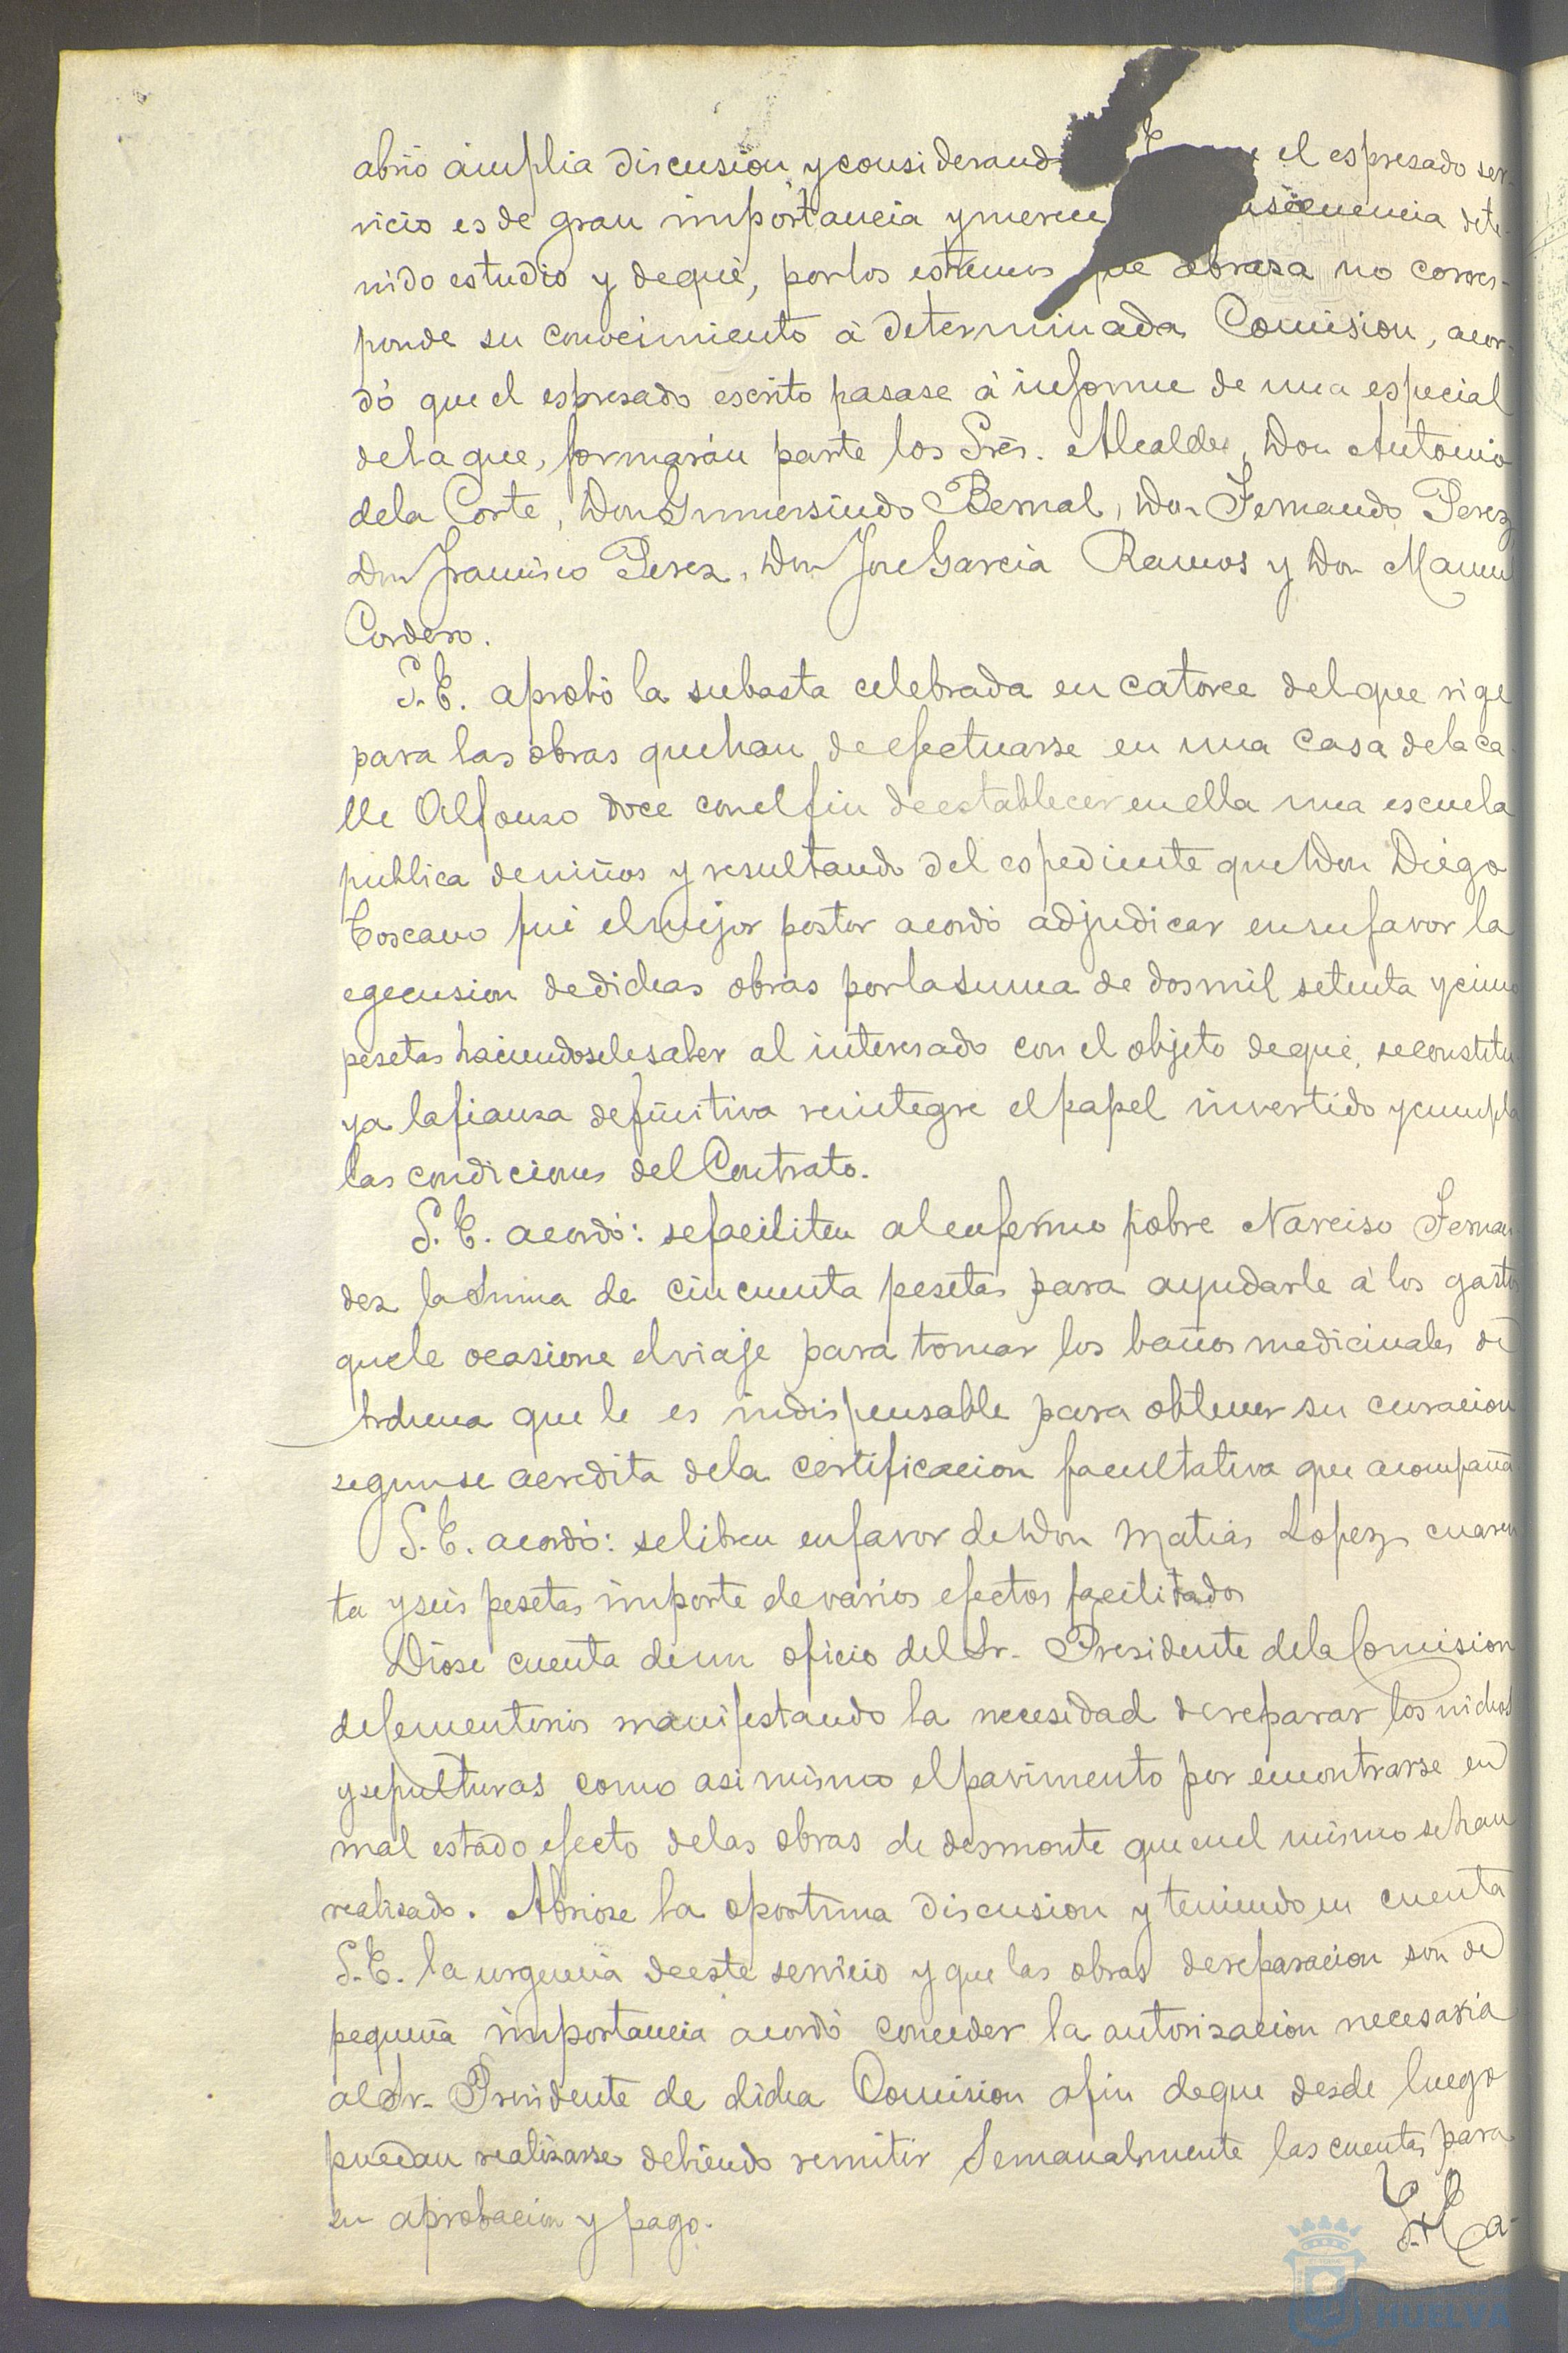 abrió ámplia discusion y considerand el espresado ser-
vicio es de gran importancia y merece dete-
nido estudio y deque, por los estremos que abraza no corres-
ponde su conocimiento á determinada Comision, acor-
dó que el espresado escrito pasase á informe de una especial
dela que, formarán parte los Sres. Alcalde, Don Antonio
dela Corte, Don Gumersindo Bernal, Don Fernando Perez
Don Francisco Perez, Don Jose Garcia Ramos y Don Manuel
Cordero.
S.E. aprobó la subasta celebrada en catorce del que rige
para las obras que han de efectuarse en una casa dela ca-
lle Alfonso doce con el fin de establecer en ella una escuela
publica de niños y resultando del espediente que Don Diego
Toscano fué el mejor postor acordó adjudicar en su favor la
egecusion de dichas obras por la suma de dos mil setenta y cinco
pesetas haciendosele saber al interesado con el objeto de que, se constitu-
ya la fianza definitiva reintegre el papel invertido y cumpla
las condiciones del Contrato.
S.E. acordó: se faciliten al enfermo pobre Narciso Fernan
dez la suma de cincuenta pesetas para ayudarle á los gastos
que le ocasione el viaje para tomar los baños medicinales de
que le es indispensable para obtener su curacion
segun se acredita dela certificacion facultativa que acompaña
S.E. acordó: se libren en favor de Don Matias Lopez cuaren
ta y seis pesetas importe de varios efectos facilitados
Diose cuenta de un oficio del Sr. Presidente dela Comision
de Sementerios manifestando la necesidad de reparar los nichos
y sepulturas como asi mismo el pavimento por encontrarse en
mal estado efecto delas obras de desmonte que en el mismo se han
realizado. Abriose la oportuna discusion y teniendo en cuenta
S.E. la urgencia de este servicio y que las obras de reparacion son de
pequeña importancia acordó conceder la autorizacion necesaria
al Sr. Presidente de dicha Comision afin de que desde luego
puedan realizarse debiendo remitir semanalmente las cuentas para
su aprobacion y pago.
HUELVA